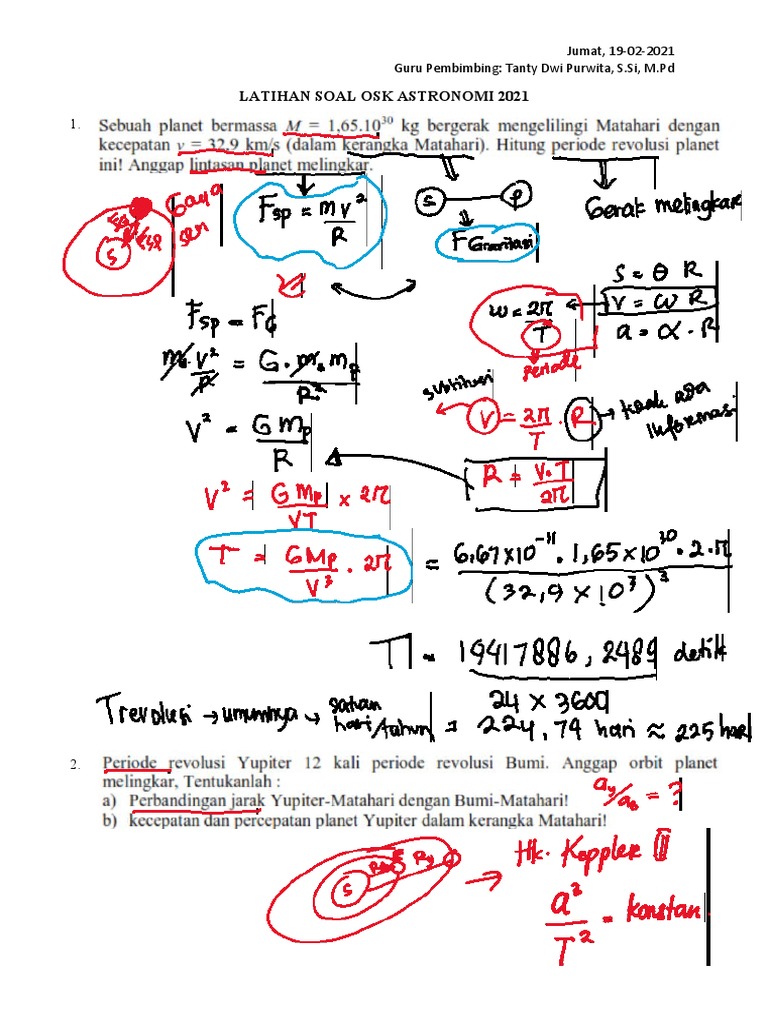 Jumat, 19-02-2021
Guru Pembimbing: Tanty Dwi Purwita, S.Si, M.Pd
LATIHAN SOAL OSK ASTRONOMI 2021
1. Sebuah planet bermassa M = 1,65.10³⁰ kg bergerak mengelilingi Matahari dengan
kecepatan v = 32,9 km/s (dalam kerangka Matahari). Hitung periode revolusi planet
ini! Anggap lintasan planet melingkar.
Gaya
sen
S
Fsp = mv²/R
S P
F Gravitasi
Gerak melingkar
S = θ R
V = ω R
a = α . R
ω = 2π/T
Periode
Fsp = FG
m.v²/R = G.m.mp/R²
V² = G mp/R
substitusi
V = 2π/T . R → tidak ada
informasi
R = V.T/2π
V² = G Mp/VT x 2π
T = G Mp/V³ . 2π = 6,67x10⁻¹¹ . 1,65x10³⁰ . 2.π/(32,9 x 10³)³
T = 19417886,2489 detik
24 x 3600
T revolusi → umumnya → satuan
hari/tahun = 224,74 hari ≈ 225 hari
2. Periode revolusi Yupiter 12 kali periode revolusi Bumi. Anggap orbit planet
melingkar, Tentukanlah :
a) Perbandingan jarak Yupiter-Matahari dengan Bumi-Matahari!
ay/aB = ?
b) kecepatan dan percepatan planet Yupiter dalam kerangka Matahari!
S
Ry
→ Hk. Keppler III
a²/T² = konstan